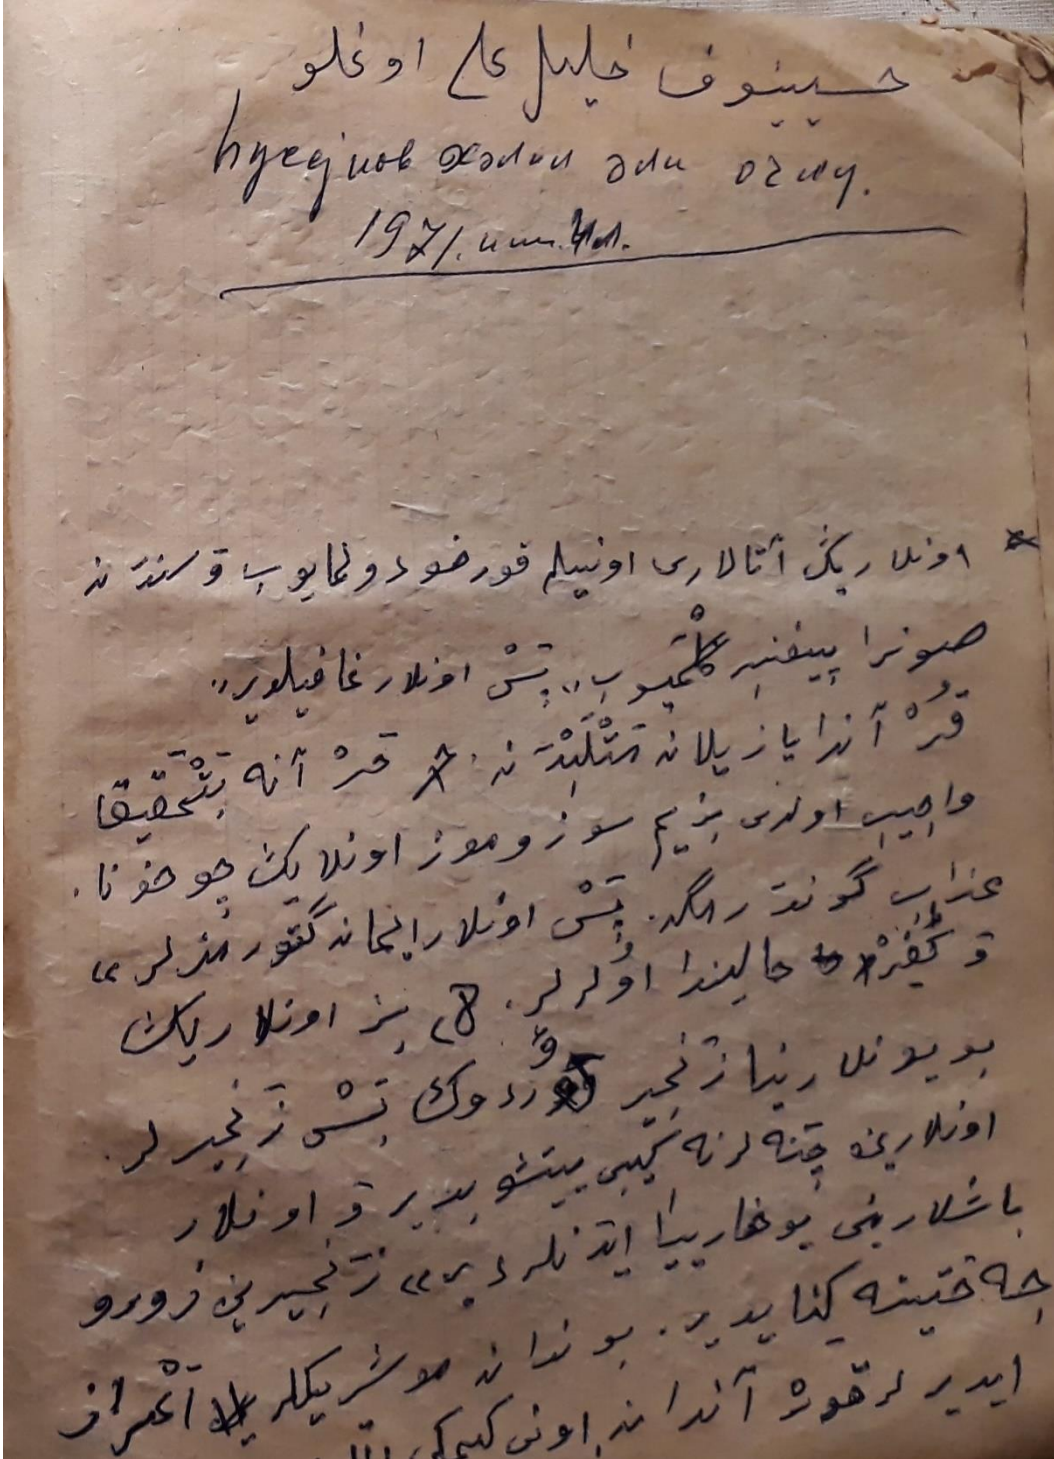 حسینوف خلیل علی اوغلو
Һусејнов Хәлил Әли оғлу.
1971. инҹи. Ил.
اونلاریڭ آتالاری اونیله قورخودولمایوب وَ سندَن
صونرا پیغنبر گلْمَیوب،، پَسْ اونلار غافیلدیر،،
قُرْ آندا یازیلان
قرْ آنه تَحقیقا
واجیب اولدی بیزیم سوزوموز اونلاریڭ چوخونا.
عذاب گوندَرمگه. پَسْ اونلار ایمان گتورمزلر،،
وَ كُفْرْ حالیندا اوُلرلر. ۸، بیز اونلاریڭ
بویونلارینا زَنجیر وُردوك پَسْ زَنجیرلر.
اونلارین چَنه لرنه كیبی ییتشوبدیر وَ اونلار
باشلارینی یوخارییا ایدنلردیر،، زَنجیرین زورو
چه ختینه كنایدیر. بوندان موشریكلر
ایدیرلر قورْ آندان اونی كیم كی